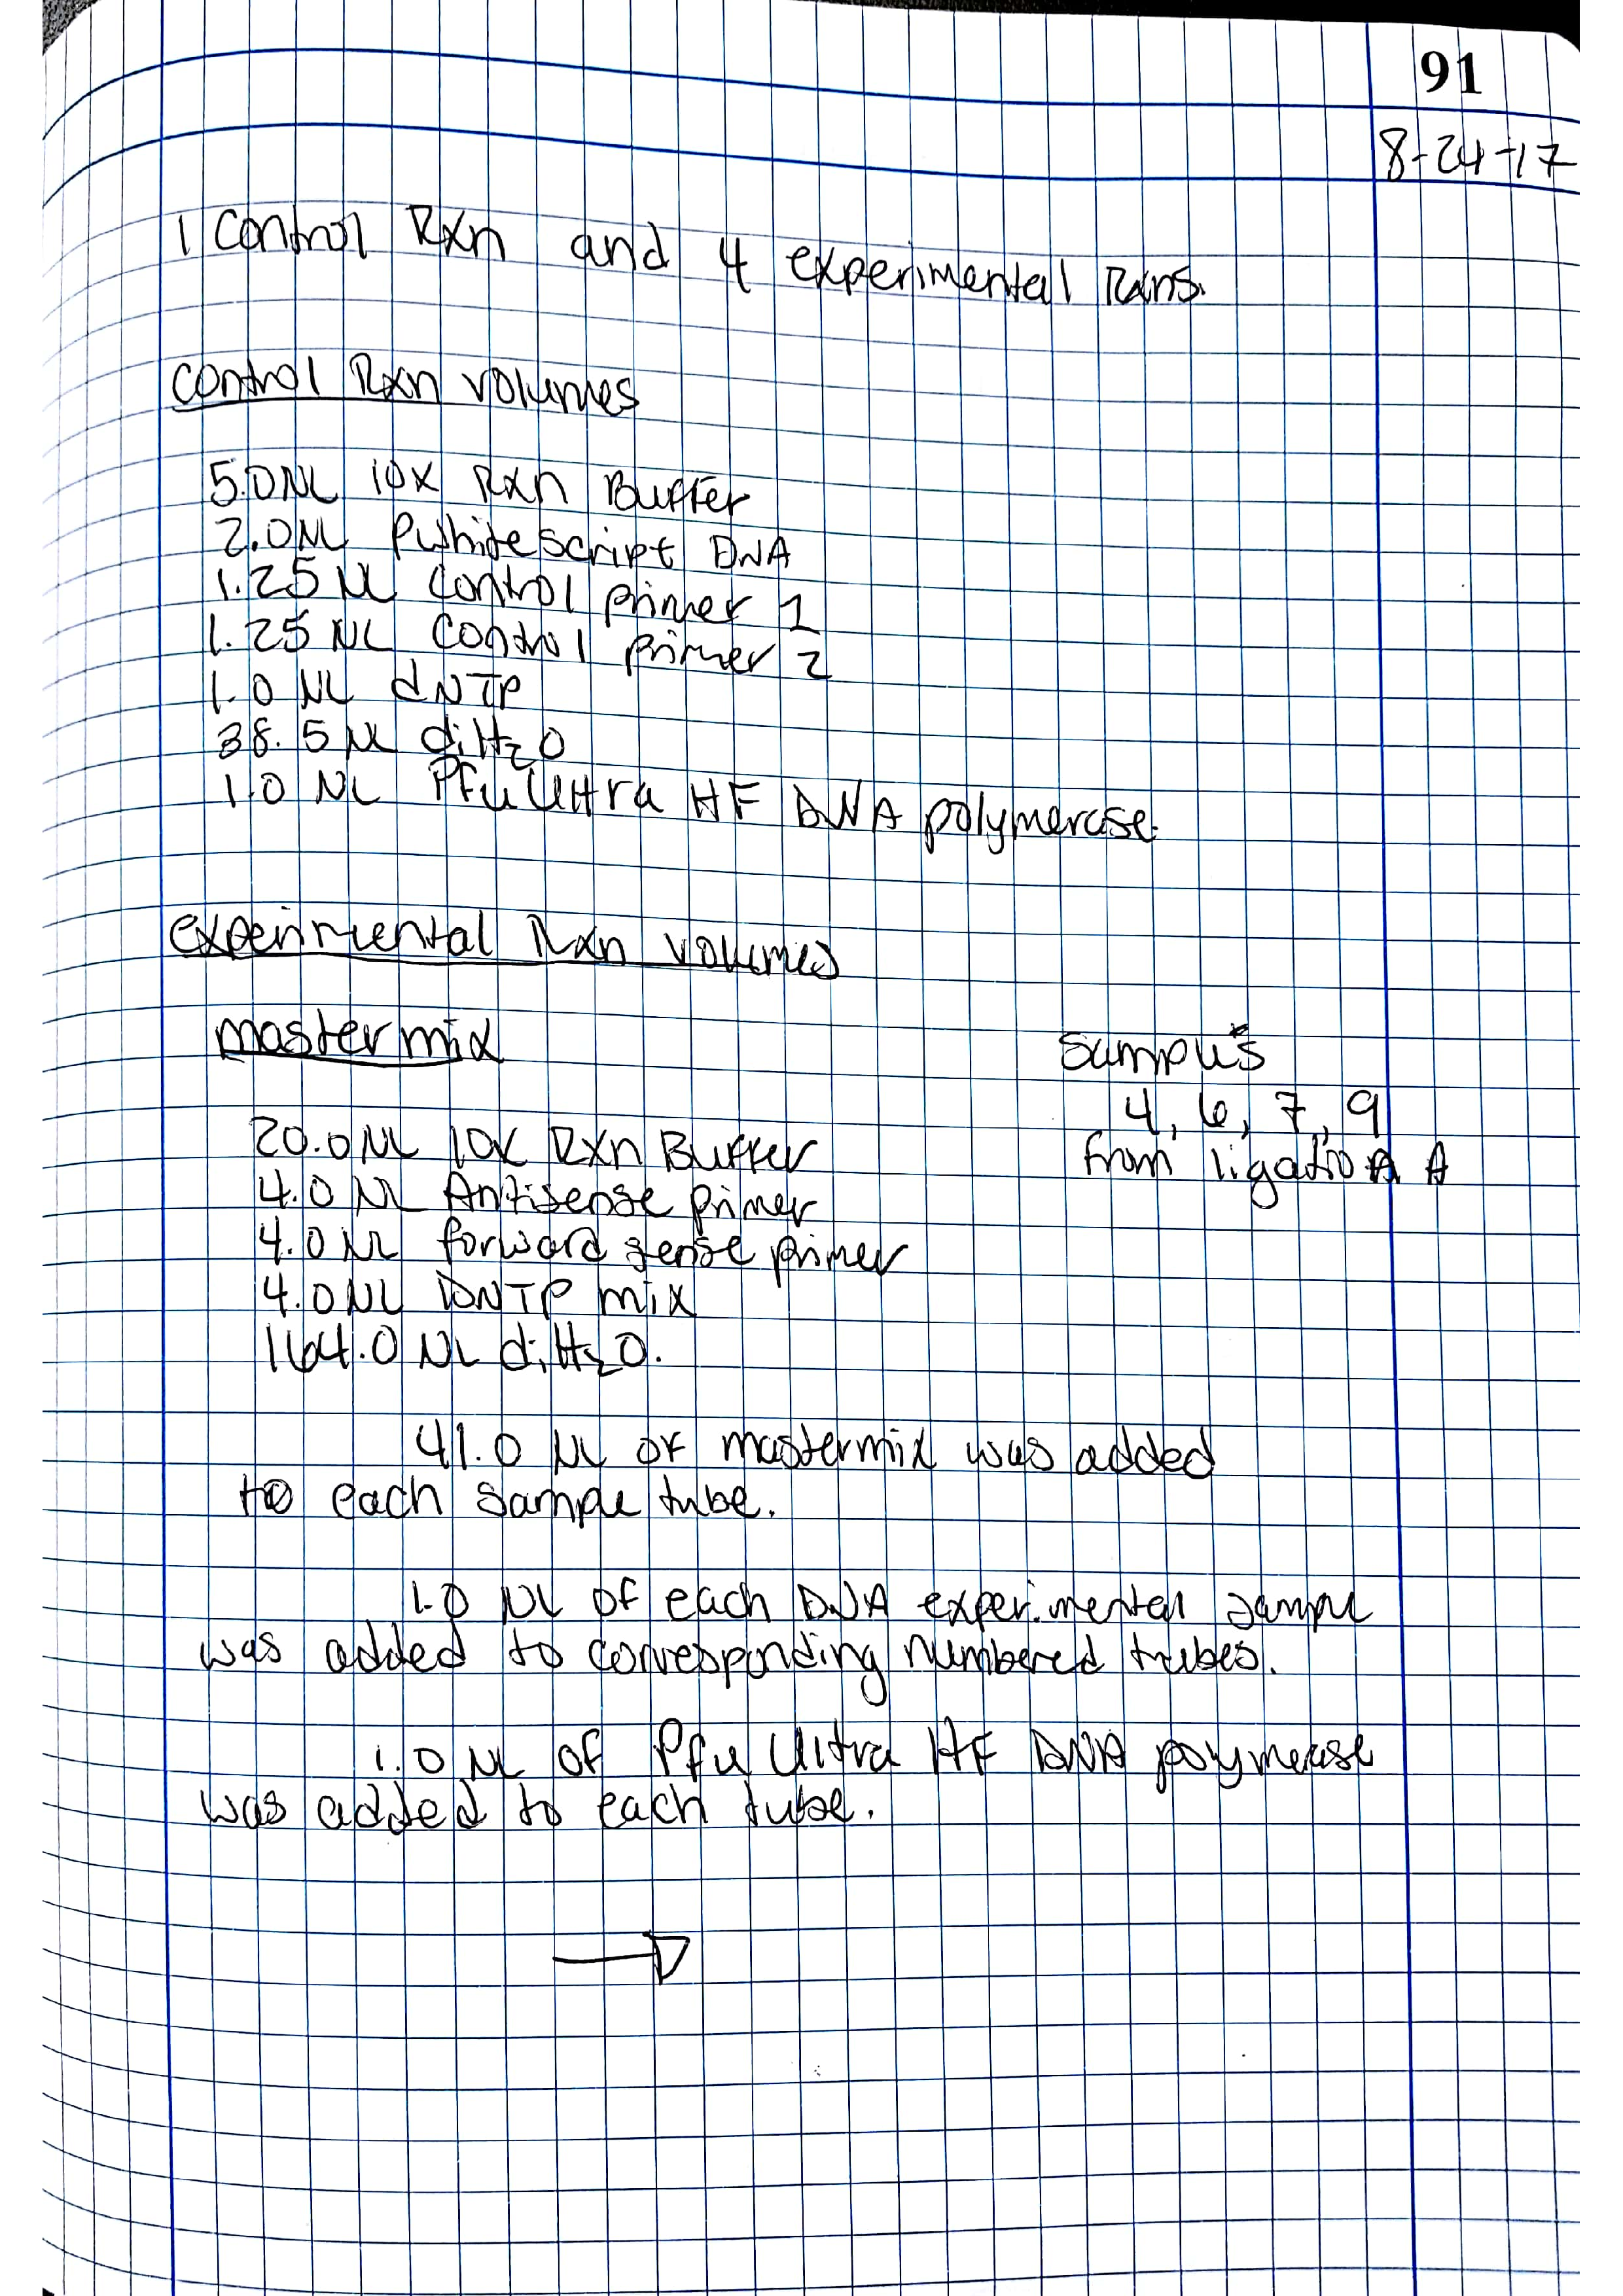 91
8-24-17
1 Control Rxn and 4 experimental Rxns.
Control Rxn volumes
5.0 µL 10x Rxn Buffer
2.0 µL pWhitescript DNA
1.25 µL Control primer 1
1.25 µL Control primer 2
1.0 µL dNTP
38.5 µL diH₂O
1.0 µL Pfu Ultra HF DNA polymerase.
experimental Rxn volumes
mastermix
samples
4, 6, 7, 9
from ligation A
20.0 µL 10x Rxn Buffer
4.0 µL Antisense primer
4.0 µL forward sense primer
4.0 µL DNTP mix
164.0 µL diH₂O.
41.0 µL of mastermix was added
to each sample tube.
1.0 µL of each DNA experimental sample
was added to corresponding numbered tubes.
1.0 µL of Pfu Ultra HF DNA polymerase
was added to each tube.